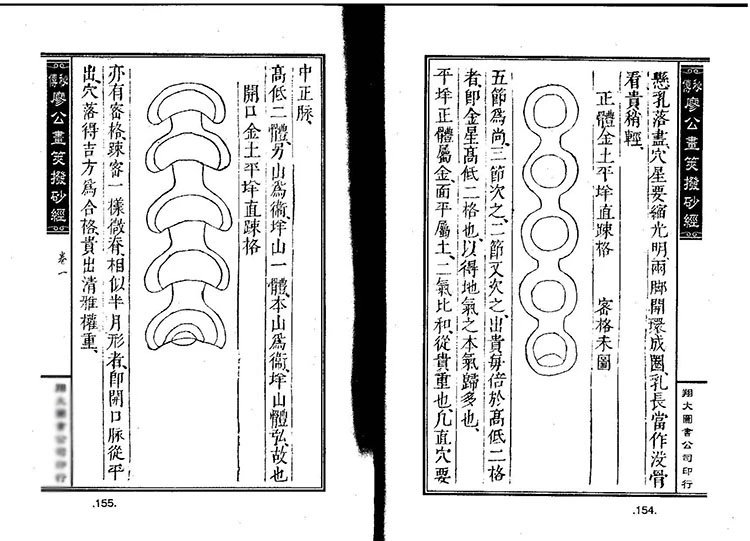 秘傳廖公畫筴撥砂經
翔大圖書公司印行
懸乳落盡穴星要縮光明兩脚開環成圈乳長當作沒骨
看貴稍輕
正體金土平垟直踈格　密格未圖
五節爲尚三節次之二節又次之出貴每倍於髙低二格
者卽金星髙低二格也以得地氣之本氣歸多也
平垟正體屬金面平屬土二氣比和從貴重也凡直穴要
.154.
中正脉
髙低二體另山爲衞垟山一體本山爲衞垟山體弘故也
開口金土平垟直踈格
亦有密格踈密一樣微脊相似半月形者卽開口脉從平
出穴落得吉方爲合格貴出清雅權重
秘傳廖公畫筴撥砂經
卷一
.155.